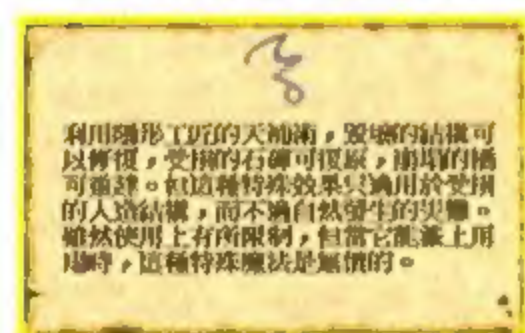 利用隱形工匠的天補術，毀壞的結構可
以修復，受損的石牆可復原，崩塌的橋
可重建。但這種特殊效果只適用於受損
的人造結構，而不適自然發生的災難。
雖然使用上有所限制，但當它能派上用
場時，這種特殊魔法是無價的。